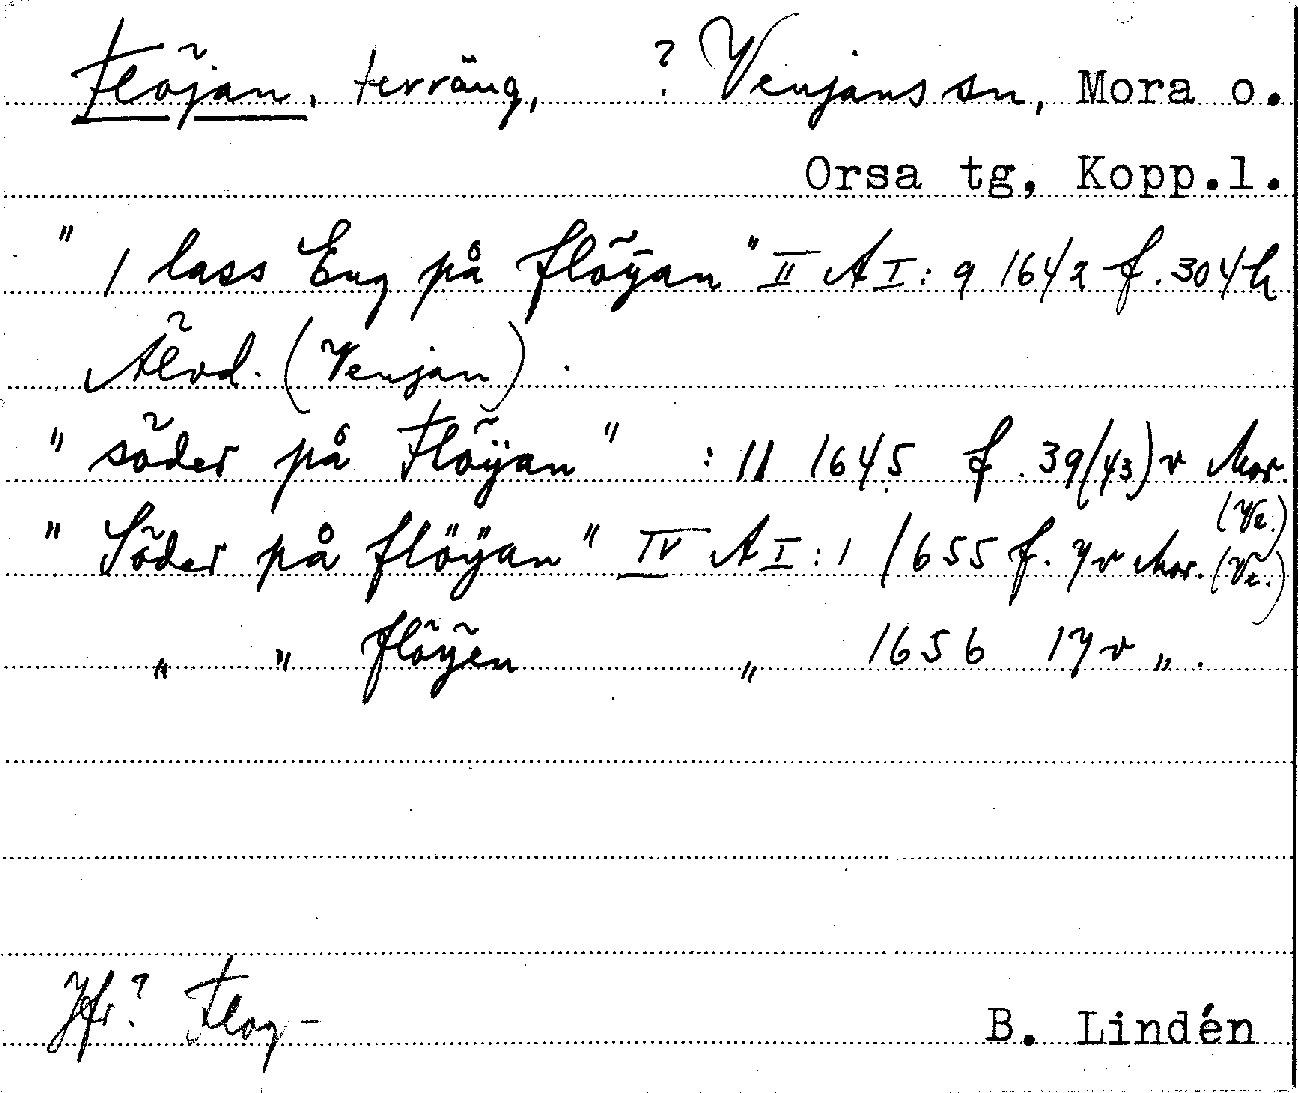 Flöjan, terräng, ? Venjans sn, Mora o.
Orsa tg, Kopp.l.
" 1 lass Eng på flöÿan " II A I: 9 1642 f. 304 h
Älvd. (Venjan).
" söder på Flöÿan " : 11 1645 f. 39(43)v Mor.
(Ve.)
" Söder på flöÿan " IV A I: 1 1655 f. 7v Mor. (Ve.)
" " flöÿen " 1656 17v ".
Jfr? Flog-
B. Lindén